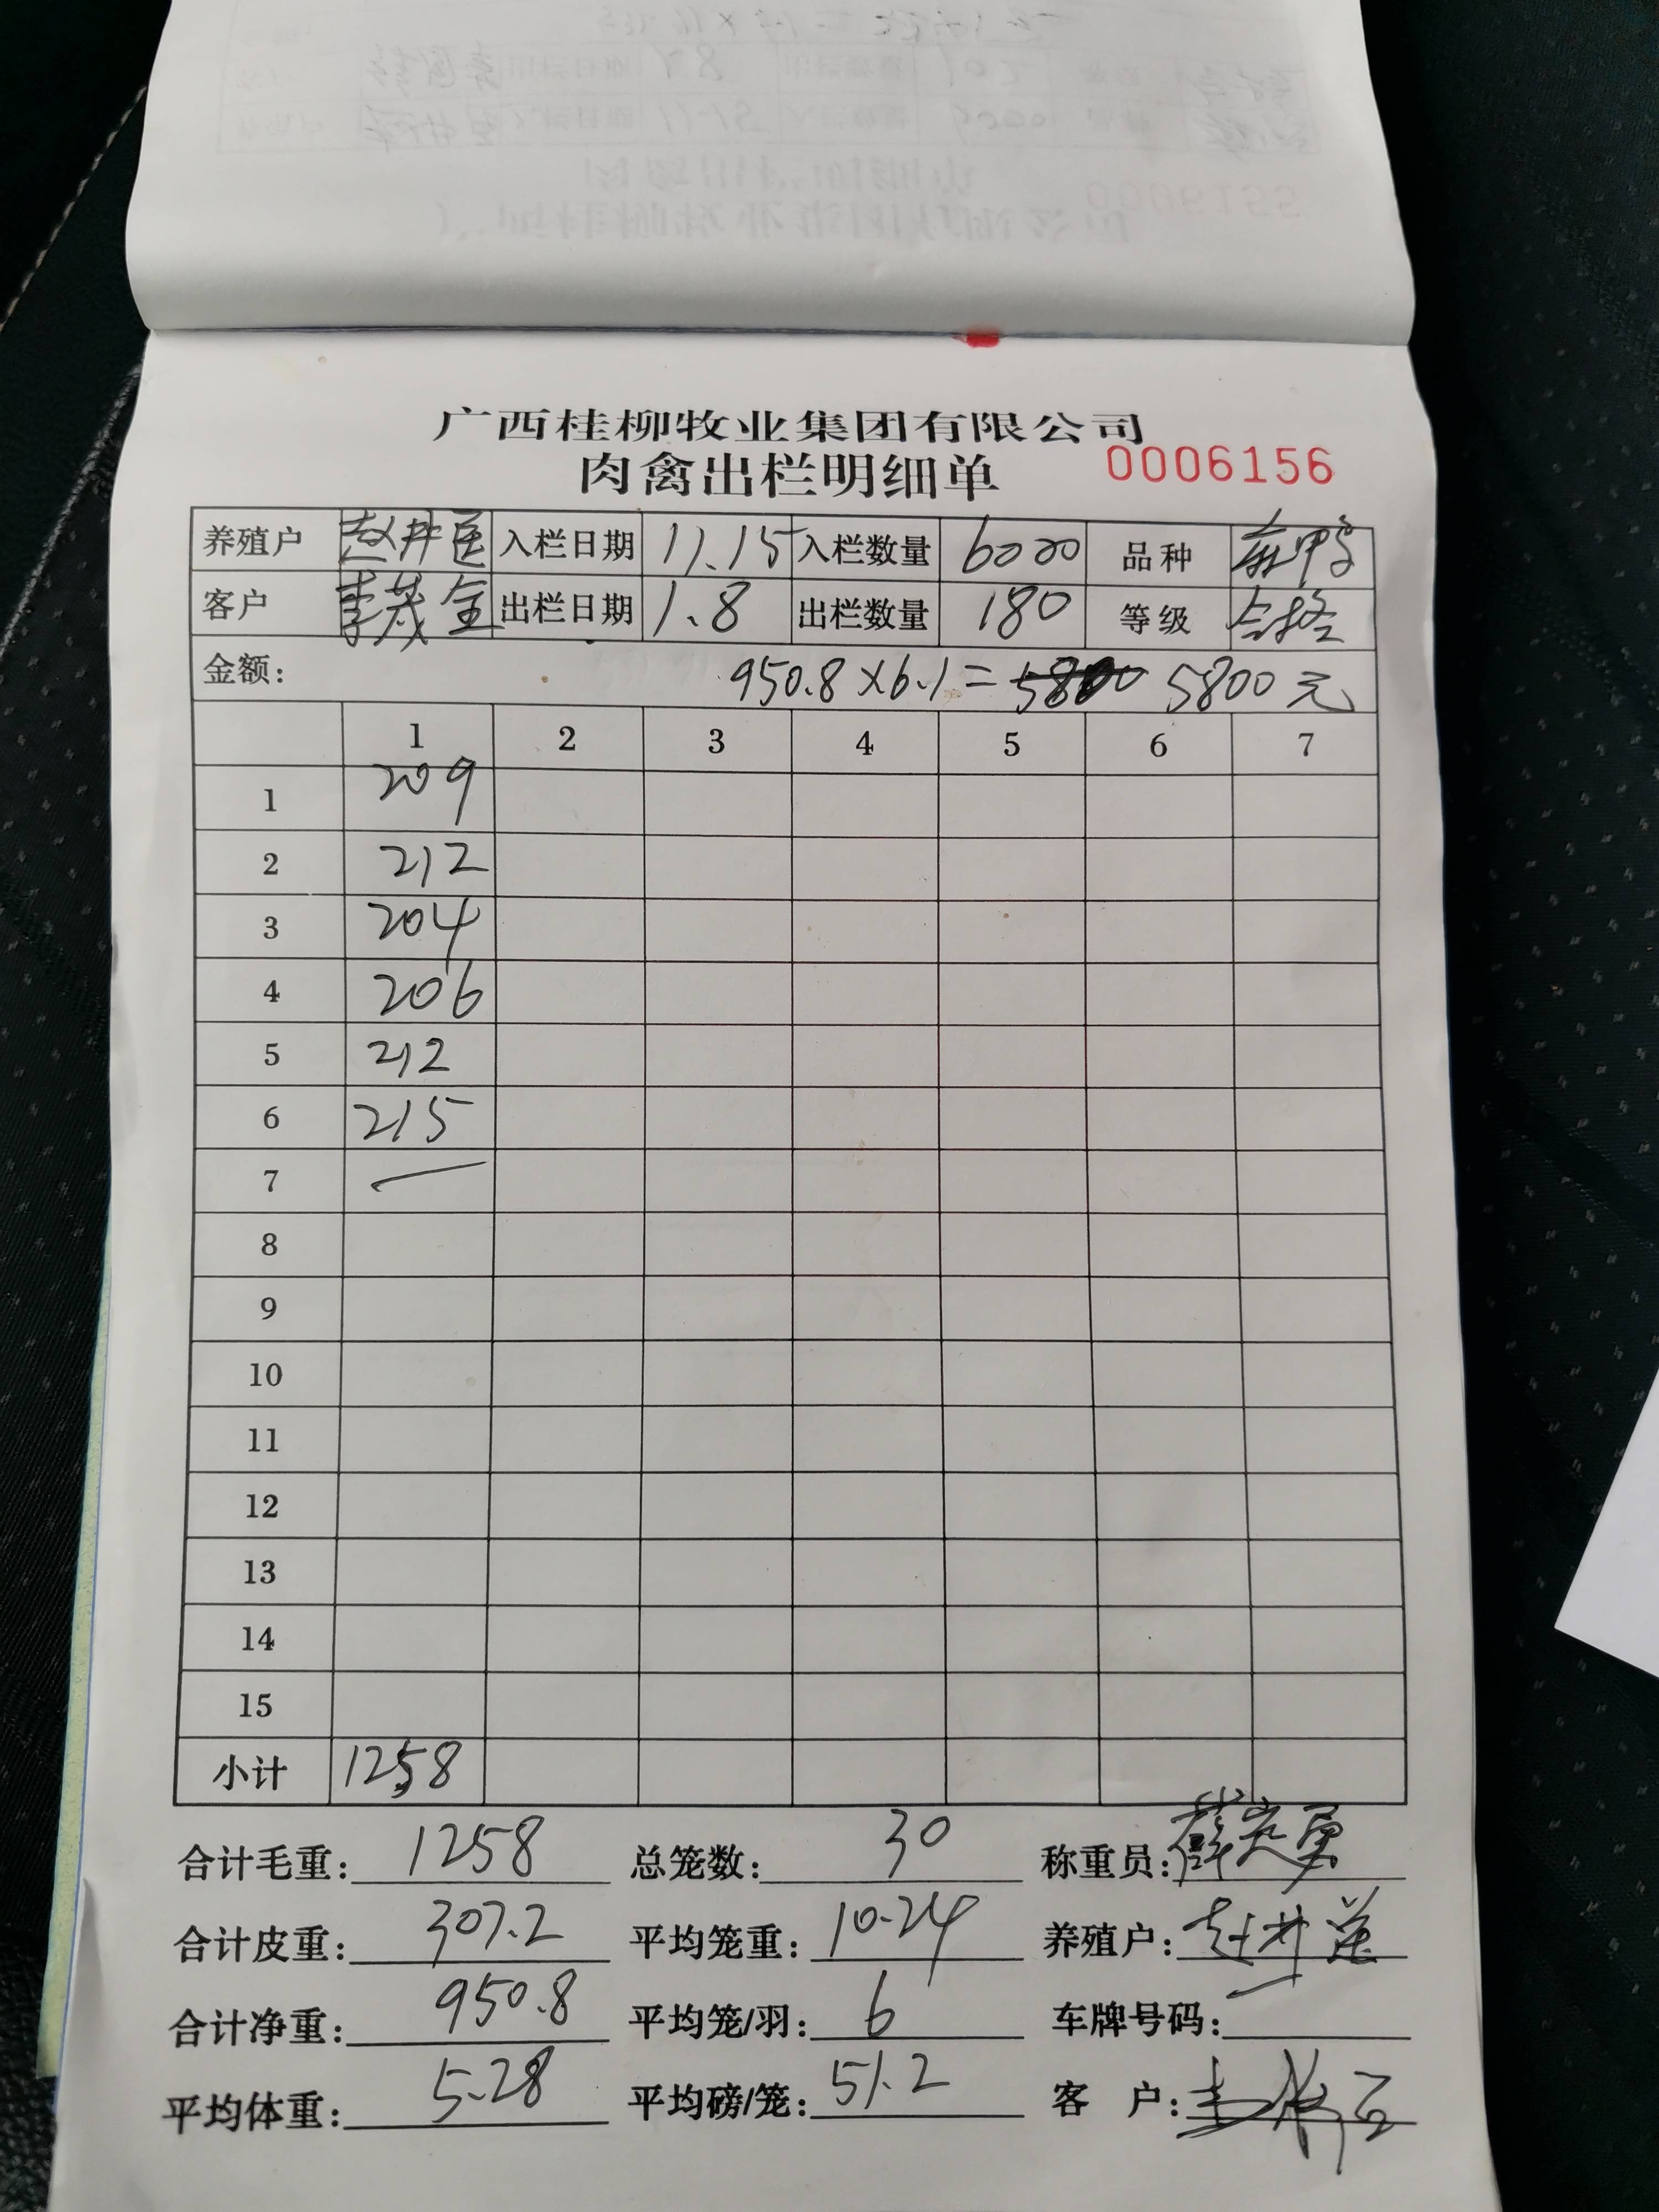 广西桂柳牧业集团有限公司
肉禽出栏明细单 0006156
养殖户 赵井 入栏日期 11.15 入栏数量 6000 品种 麻鸭
客户 李茂金 出栏日期 1.8 出栏数量 180 等级 合格
金额: 950.8×6.1= 5800元
1 2 3 4 5 6 7
1 209
2 212
3 204
4 206
5 212
6 215
7 —
8
9
10
11
12
13
14
15
小计 1258
合计毛重: 1258 总笼数: 30 称重员:
合计皮重: 307.2 平均笼重: 10.24 养殖户: 赵井
合计净重: 950.8 平均笼/羽: 6 车牌号码: —
平均体重: 5.28 平均磅/笼: 51.2 客 户: